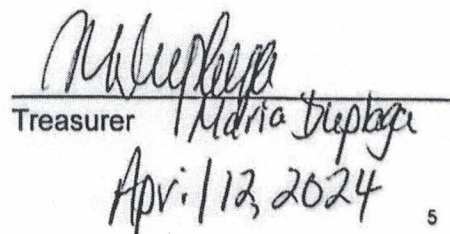 Treasurer Maria Dieplaga
April 12, 2024
5